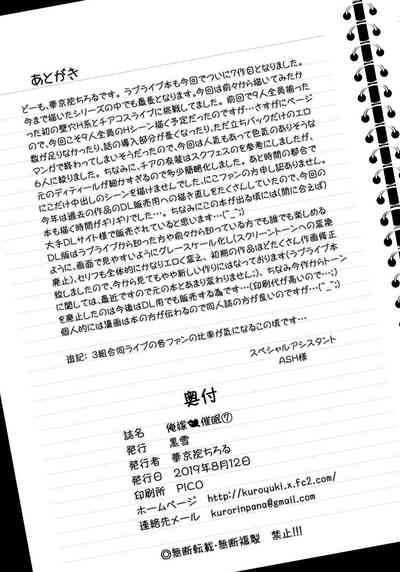 あとがき
どーも、華京院ちろるです。ラブライブ本も今回でついに7作目となりました。
今まで描いたシリーズの中でも最長となります。今回は前々から描いてみたか
った初の壁穴H系とチアコスライブに挑戦してました。前回で9人全員揃った
ので、今回こそ9人全員のHシーン描く予定だったのですが…さすがにページ
数が足りなかったり、話の導入部分が長くなったり、ただ立ちバックだけのエロ
マンガで終わってしまいそうだったので、今回は人気もあって色気のありそうな
6人に絞りました。ちなみに、チアの衣装はスクフェスのを参考にしましたが、
元のディティールが細かすぎるので多少簡略化しました。あと時間の都合で
にこだけ中出しのシーンを描けませんでした、にこファンの方申し訳ありません。
今年は過去の作品のDL販売用への描き直しをたくさんしていたので、今回の
本も描く時間がギリギリでした…。ちなみにこの本が出る頃には(間に合えば)
大手DLサイト様で販売されていると思います…(^_^;)
DL版はラブライブから知った方や前々から知っている方でも誰でも楽しめる
ように、画面で見やすいようにグレースケール化し(スクリーントーンへの変換
廃止)、セリフも全体的にかなりエロく変え、初期の作品ほどたくさん作画修正
致しましたので、今から見てもやや新しい作りにはなっております(ラブライブ本
に関しては、最近ですので元の本とあまり変わりません;)、ちなみ今作からトーン
を廃止したのは今後はDL用でも販売する為です…(印刷代が高いので…;)
個人的には漫画は本の方が伝わるので同人誌の方が良いのですが…(^_^;)
追記：3組合同ライブの各ファンの比率が気になるこの頃です…
スペシャルアシスタント
ASH様
奥付
誌名 俺嫁催眠⑦
発行 黒雪
発行者 華京院ちろる
発行日 2019年8月12日
印刷所 PICO
ホームページ http://kuroyuki.x.fc2.com/
連絡先メール kurorinpana@gmail.com
◎無断転載・無断複製 禁止!!!